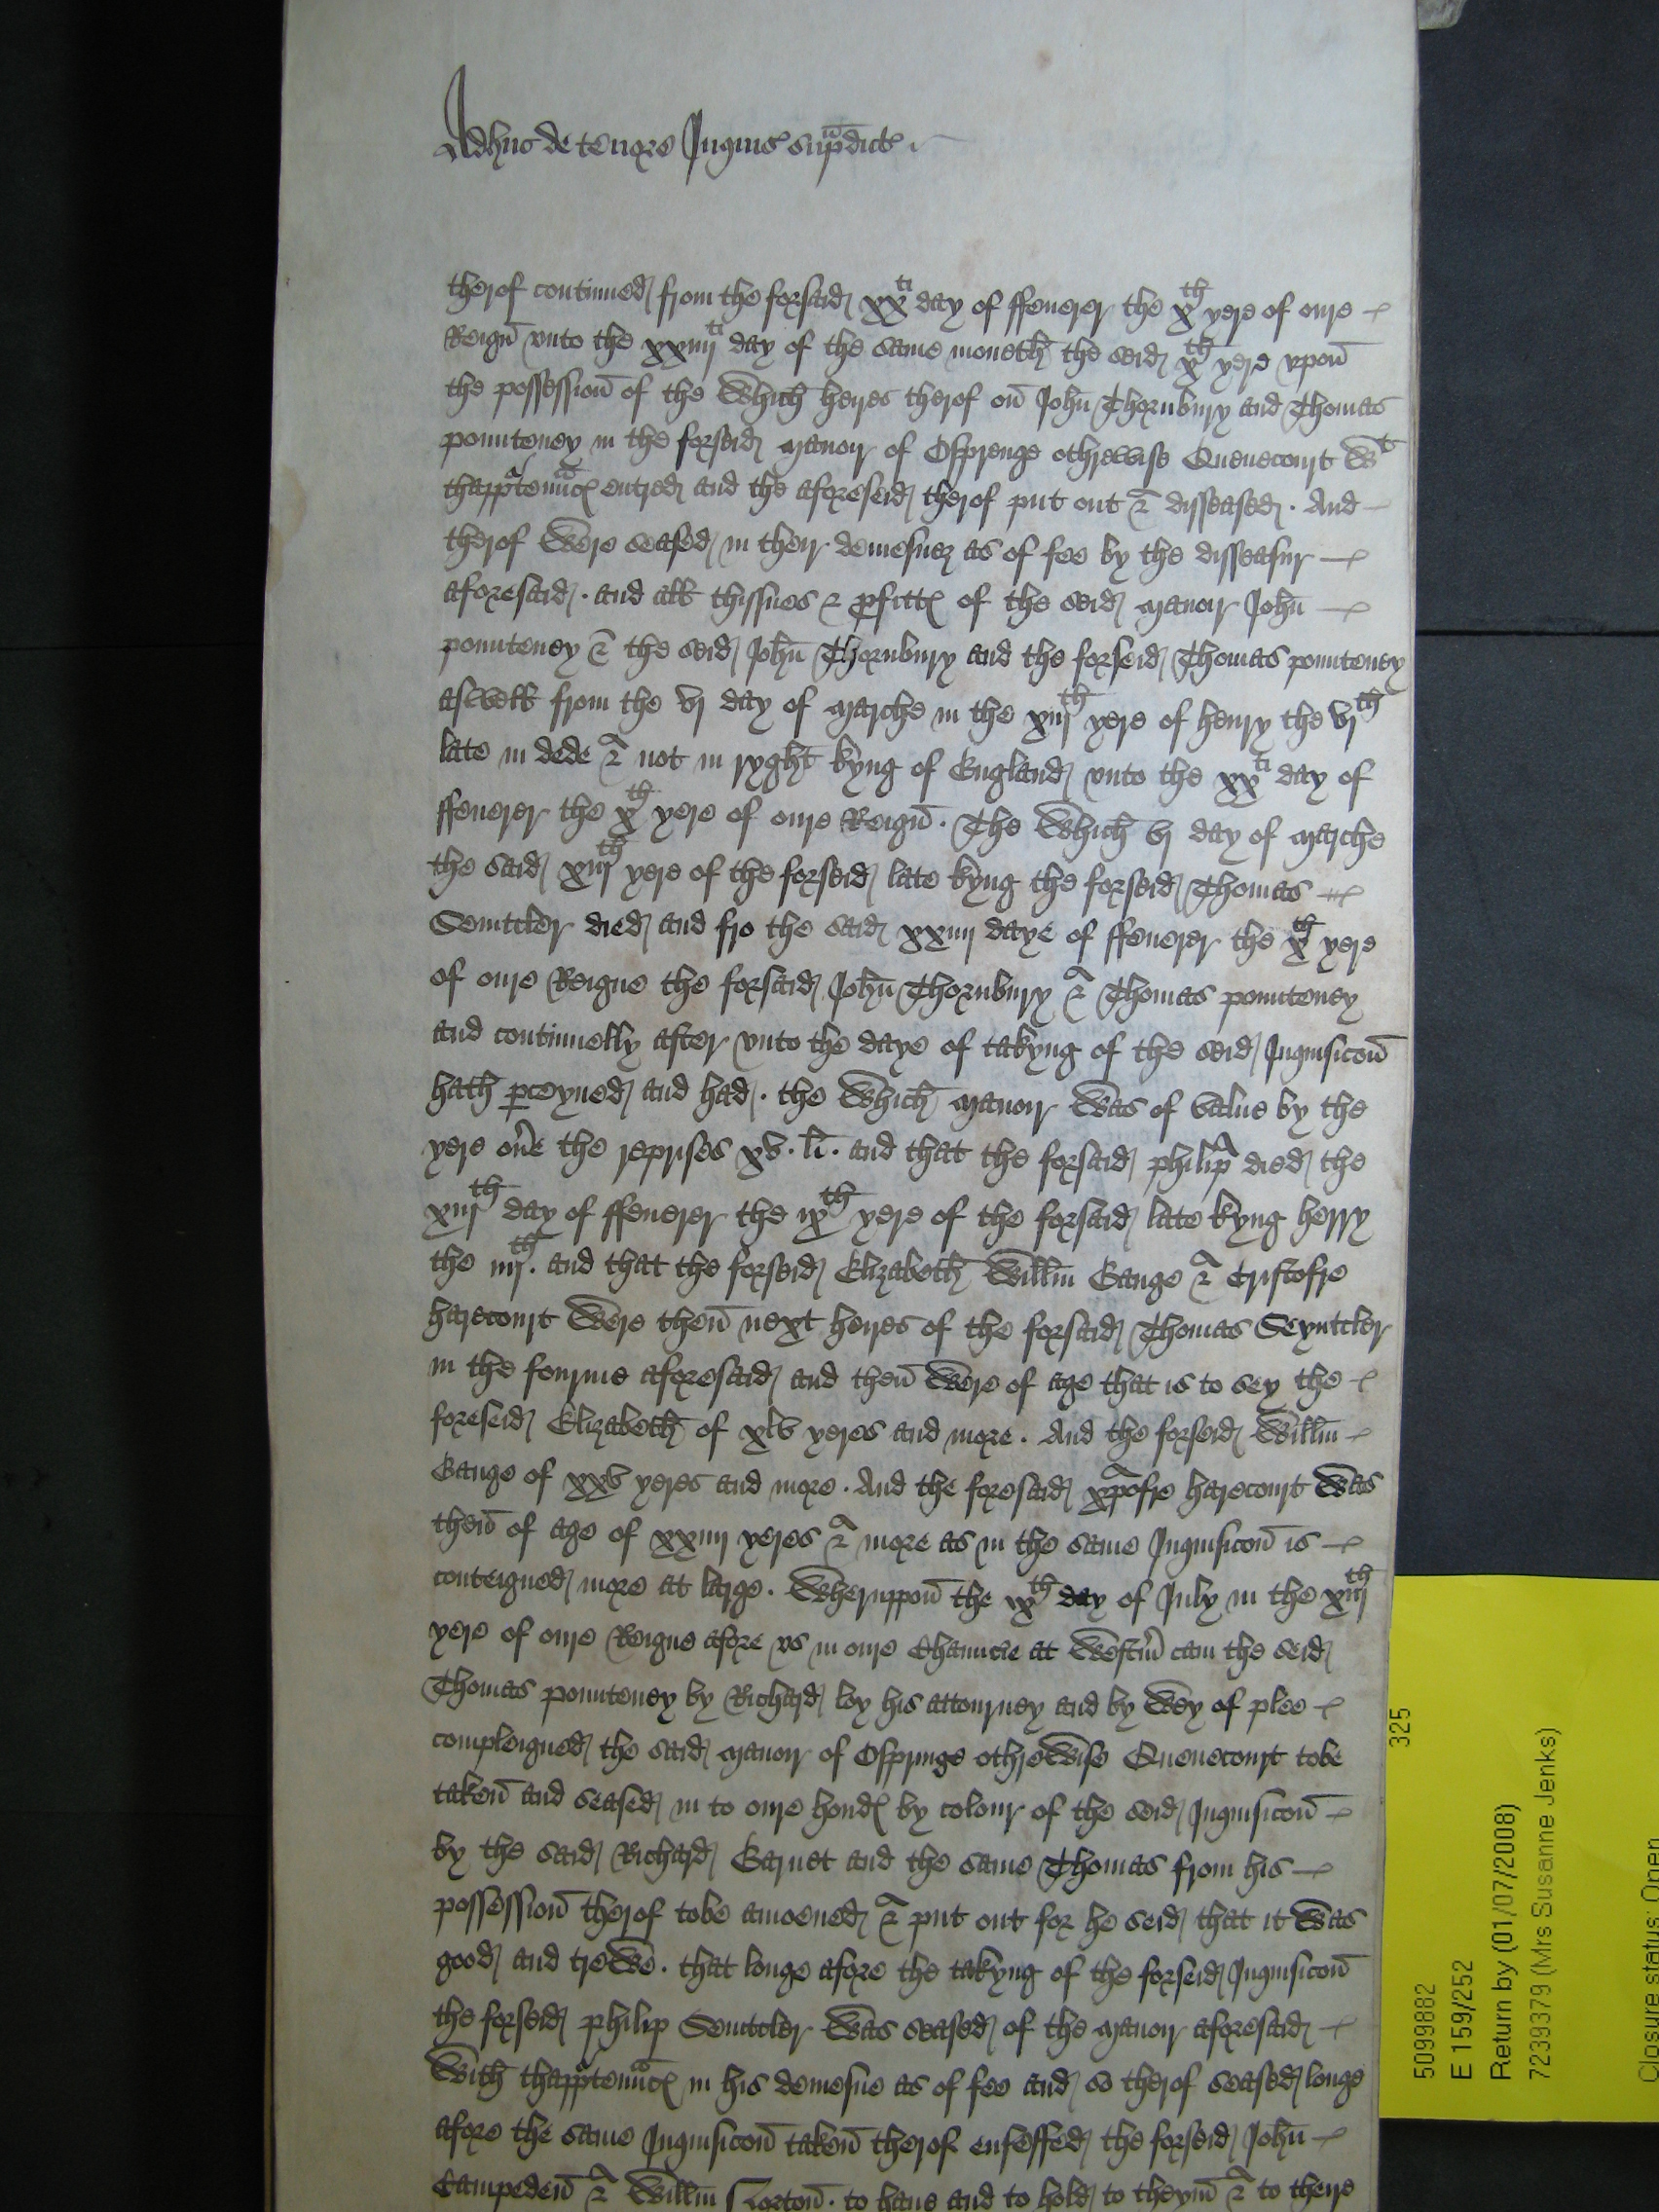 Adhuc de tenore Inquis supdict
therof continued from the forsaid xx^ti day of ffeuerer the x^th yere of oure
Reign vnto the xxiiij^ti day of the same moneth the seid x^th yere vpon
the possession of the which heires therof on John Thornbury and Thomas
pounteney in the forseid manoir of Osprenge othrewise Quenecourt w^t
thapptenncs entred and the aforeseid therof put out & disseased. And
therof were seased in their demesnez as of fee by the disseasur
aforesaid. and all thissues & pfitts of the seid manoir John
pounteney & the seid John Thornbury and the forseid Thomas pounteney
aswell from the vj day of Marche in the xiij^th yere of henry the vj^th
late in dede & not in ryght kyng of England vnto the xx^ti day of
ffeuerer the x^th yere of oure Reign. The which vj day of Marche
the said xiij^th yere of the forseid late kyng the forseid Thomas
Seintcler died and fro the said xxiiij daye of ffeuerer the x^th yere
of oure Reigne the forsaid John Thornbury & Thomas pounteney
and continuelly after vnto the daye of takyng of the seid Inquisicon
hath pceyued and had. the which manoir was of value by the
yere oue the reprises xv. li. and that the forsaid philip died the
xiij^th day of ffeuerer the ix^th yere of the forsaid late kyng herry
the iiij^th. and that the forseid Elizabeth Willm Gange & Cristofre
harecourt were then next heires of the forsaid Thomas Seyntcler
in the fourme aforesaid and then were of age that is to sey the
foreseid Elizabeth of xlv yeres and more. And the forseid Willm
Gange of xxv yeres and more. And the foresaid xpofre harecourt was
then of age of xxiiij yeres & more as in the same Inquisicon is
conteigned more at large. Wheruppon the ix^th day of July in the xiij^th
yere of oure Reigne afore vs in oure Chauncie at Westm cam the seid
Thomas pounteney by Richard loy his attourney and by wey of plee
compleigned the said manoir of Osprynge othrewise Quenecourt tobe
taken and seased in to oure hond by colour of the seid Inquisicon
by the said Richard Garnet and the same Thomas from his
possession therof tobe amoeued & put out for he seid that it was
good and trewe. that longe afore the takyng of the forseid Inquisicon
the forseid philip Seintcler was seased of the manoir aforesaid
with thapptenncs in his demesne as of fee and so therof seased longe
afore the same Inquisicon taken therof enfeffed the forseid John
Campeden & Willm Norton. to haue and to hold to theym & to theire
325
5099882
E 159/252
Return by (01/07/2008)
7239379 (Mrs Susanne Jenks)
Closure status: Open